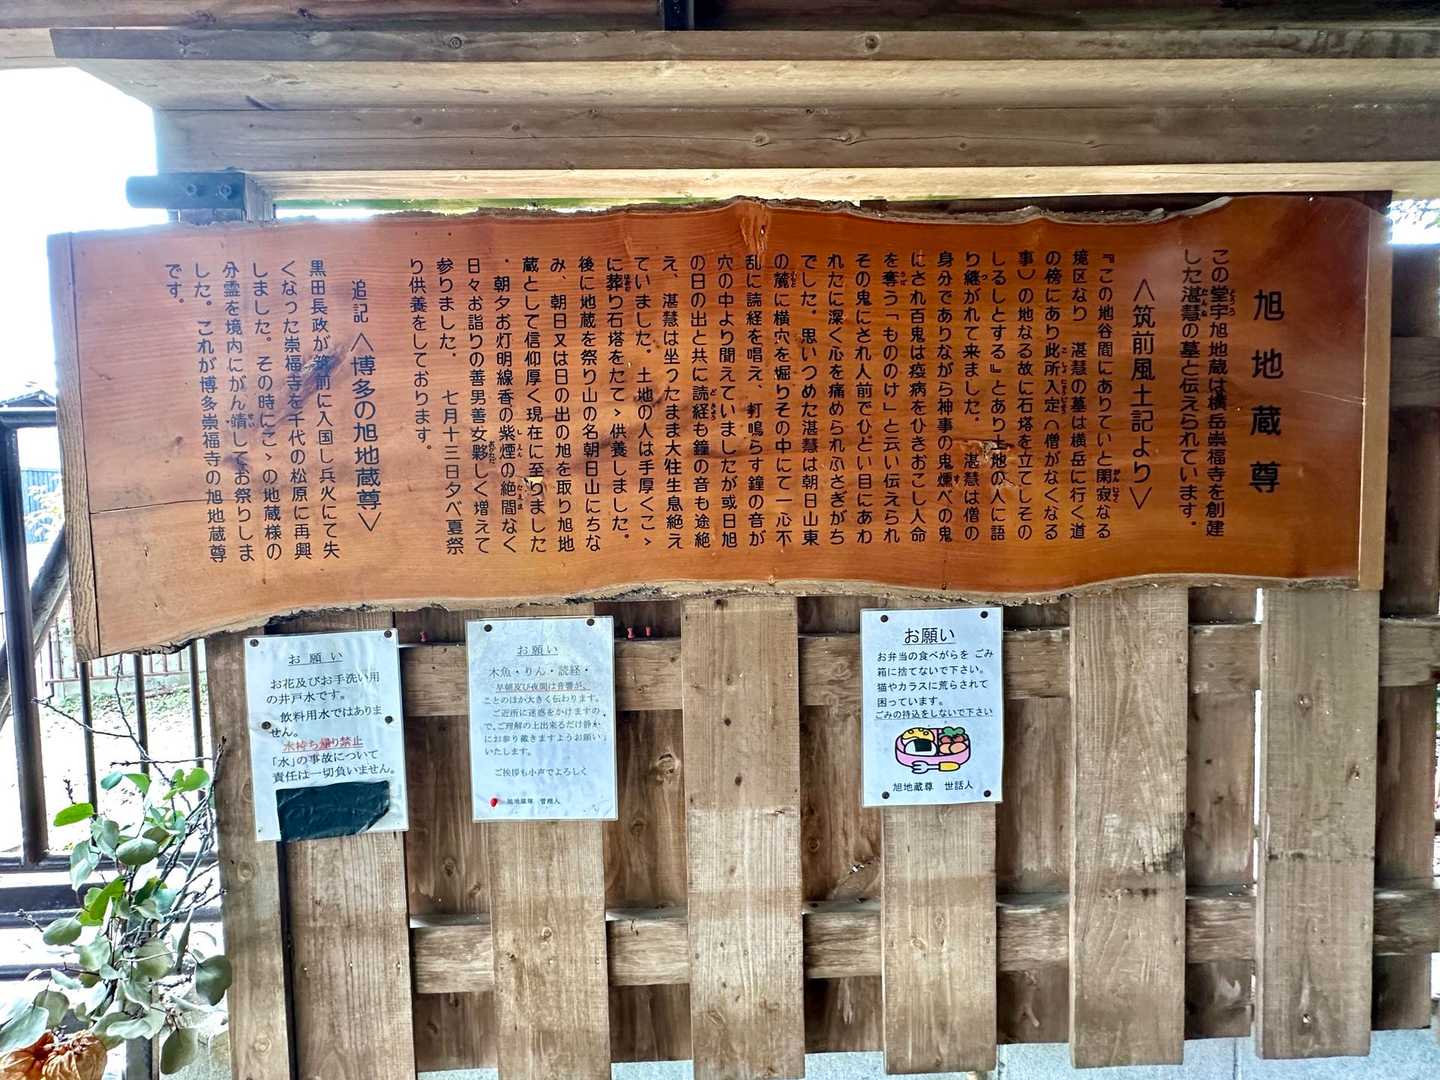 旭地蔵尊
この堂宇旭地蔵は横岳崇福寺を創建
した湛慧の墓と伝えられています。
＜筑前風土記より＞
『この地谷間にありていと閑寂なる
境区なり 湛慧の墓は横岳に行く道
の傍にあり此所入定（僧がなくなる
事）の地なる故に石塔を立てしその
しるしとする』とあり土地の人に語
り継がれて来ました。 湛慧は僧の
身分でありながら神事の鬼燻べの鬼
にされ百鬼は疫病をひきおこし人命
を奪う「もののけ」と云い伝えられ
その鬼にされ人前でひどい目にあわ
れたに深く心を痛められふさぎがち
でした。思いつめた湛慧は朝日山東
の麓に横穴を堀りその中にて一心不
乱に読経を唱え、釘鳴らす鐘の音が
穴の中より聞えていましたが或日旭
の日の出と共に読経も鐘の音も途絶
え、湛慧は坐りたまま大往生息絶え
ていました。土地の人は手厚くこゝ
に葬り石塔をたてゝ供養しました。
後に地蔵を祭り山の名朝日山にちな
み、朝日又は日の出の旭を取り旭地
蔵として信仰厚く現在に至りました
・朝夕お灯明線香の紫煙の絶間なく
日々お詣りの善男善女夥しく増えて
参りました。 七月十三日夕べ夏祭
り供養をしております。
追記 ＜博多の旭地蔵尊＞
黒田長政が筑前に入国し兵火にて失
くなった崇福寺を千代の松原に再興
しました。その時にこゝの地蔵様の
分霊を境内にがん請してお祭りしま
した。これが博多崇福寺の旭地蔵尊
です。
お願い
お花及びお手洗い用
の井戸水です。
飲料用水ではありま
せん。
水持ち帰り禁止
「水」の事故について
責任は一切負いません。
お願い
木魚・りん・読経・
早朝及び夜間は音響が、
ことのほか大きく伝わります。
ご近所に迷惑をかけますの
で、ご理解の上出来るだけ静か
にお参り戴きますようお願い
いたします。
ご挨拶も小声でよろしく
旭地蔵尊 管理人
お願い
お弁当の食べがらを ごみ
箱に捨てないで下さい。
猫やカラスに荒らされて
困っています。
ごみの持込をしないで下さい
旭地蔵尊 世話人